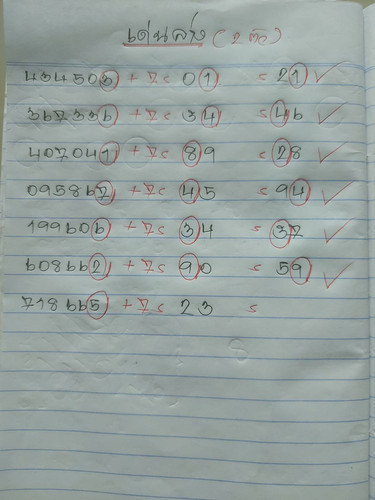 เด่นล่าง (2 ตัว)
434503 + 7 = 01 = 21 ✓
367336 + 7 = 34 = 46 ✓
407041 + 7 = 89 = 28 ✓
095867 + 7 = 45 = 94 ✓
199606 + 7 = 34 = 37 ✓
608662 + 7 = 90 = 59 ✓
718665 + 7 = 23 =